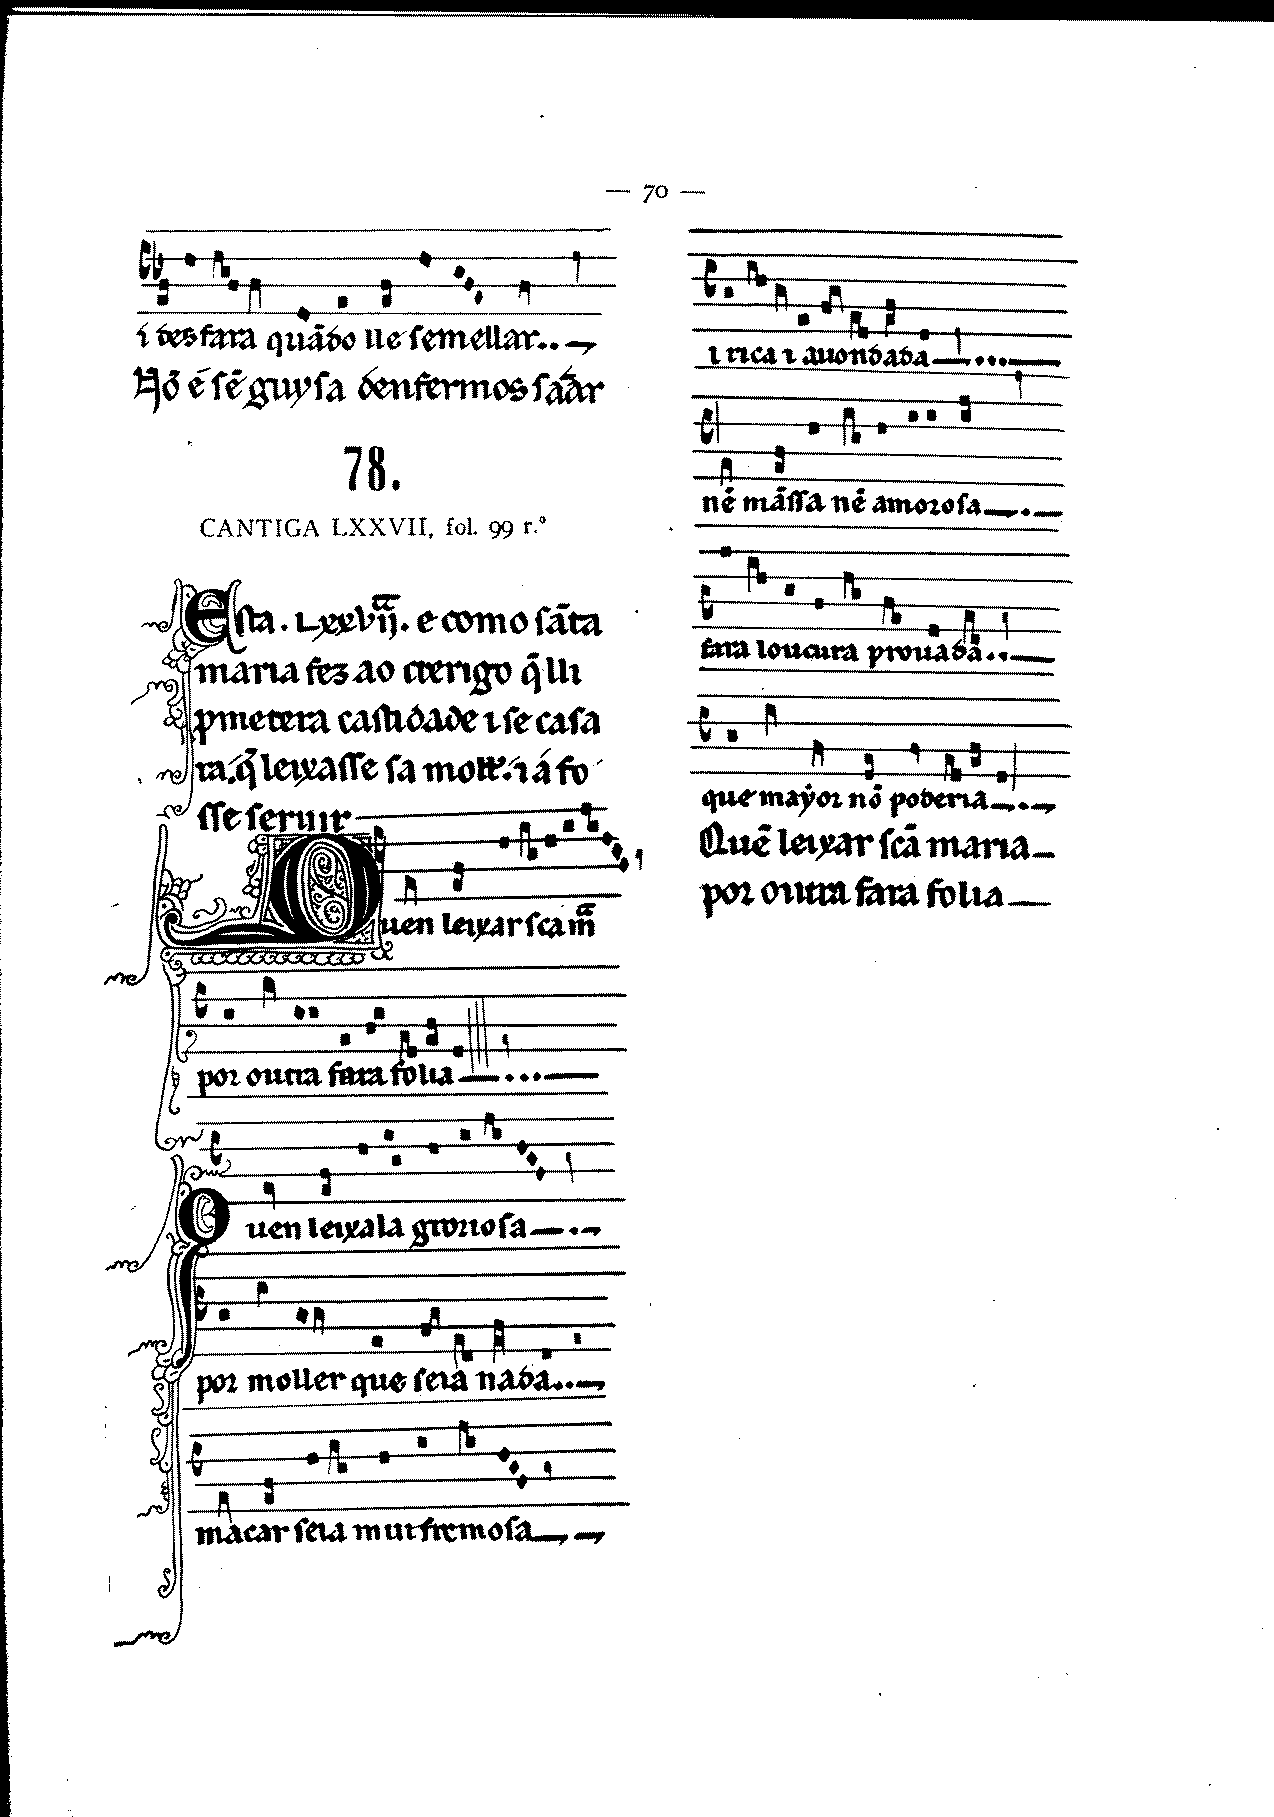 — 70 —
i desfara quãdo lle semellar..
Nõ é sẽ guysa denfermos sãar
78.
CANTIGA LXXVII, fol. 99 r.º
Esta . Lxxvii.ª . e como sãta
maria fez ao crerigo q̃ lli
pmetera castidade ⁊ se casa
ra. q̃ leixasse sa moller. ⁊ á fo
sse seruir
Quen leixar sca mª
por outra fara folia
Quen leixala groriosa
por moller que seia nada..
macar seia mui fremosa
⁊ rica ⁊ auondada
nẽ mãssa nẽ amorosa
fara loucura prouada..
que mayor nõ poderia
Quẽ leixar scã maria
por outra fara folia